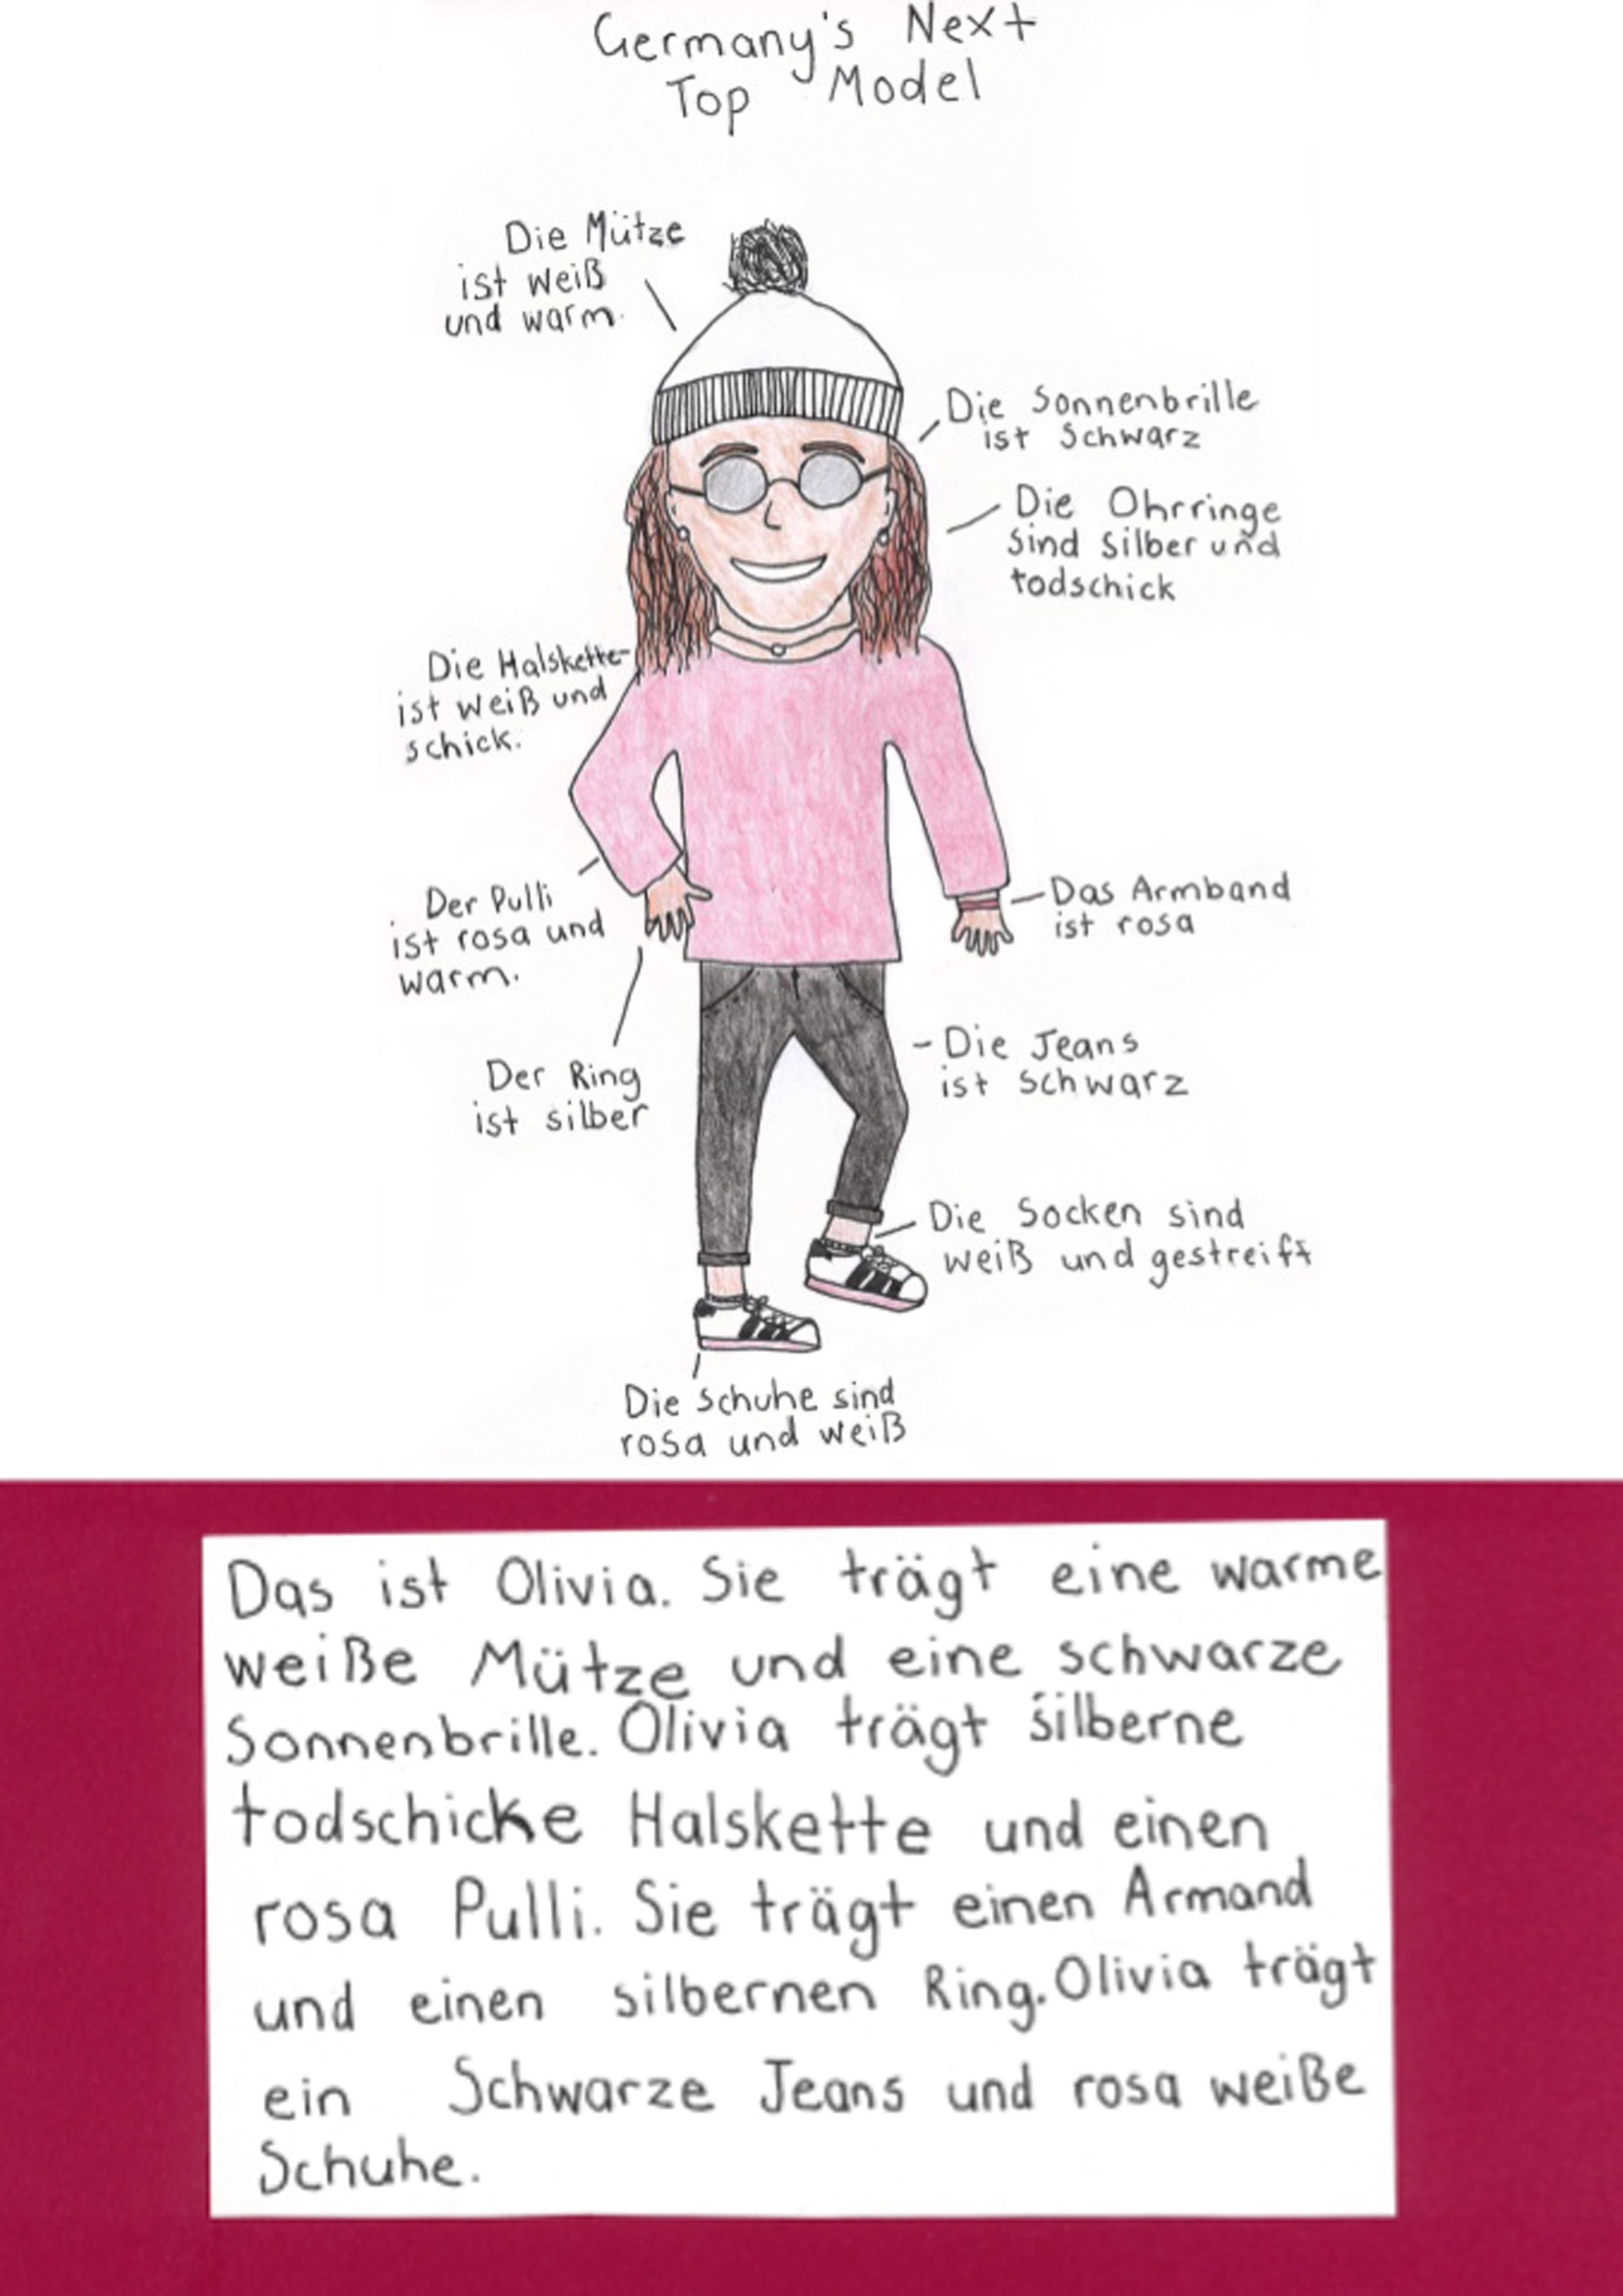 Germany's Next
Top Model
Die Mütze
ist weiß
und warm.
Die Sonnenbrille
ist schwarz
Die Ohrringe
sind silber und
todschick
Die Halskette
ist weiß und
schick.
Der Pulli
ist rosa und
warm.
Das Armband
ist rosa
Der Ring
ist silber
Die Jeans
ist schwarz
Die Socken sind
weiß und gestreift
Die Schuhe sind
rosa und weiß
Das ist Olivia. Sie trägt eine warme
weiße Mütze und eine schwarze
Sonnenbrille. Olivia trägt silberne
todschicke Halskette und einen
rosa Pulli. Sie trägt einen Armand
und einen silbernen Ring. Olivia trägt
ein Schwarze Jeans und rosa weiße
Schuhe.